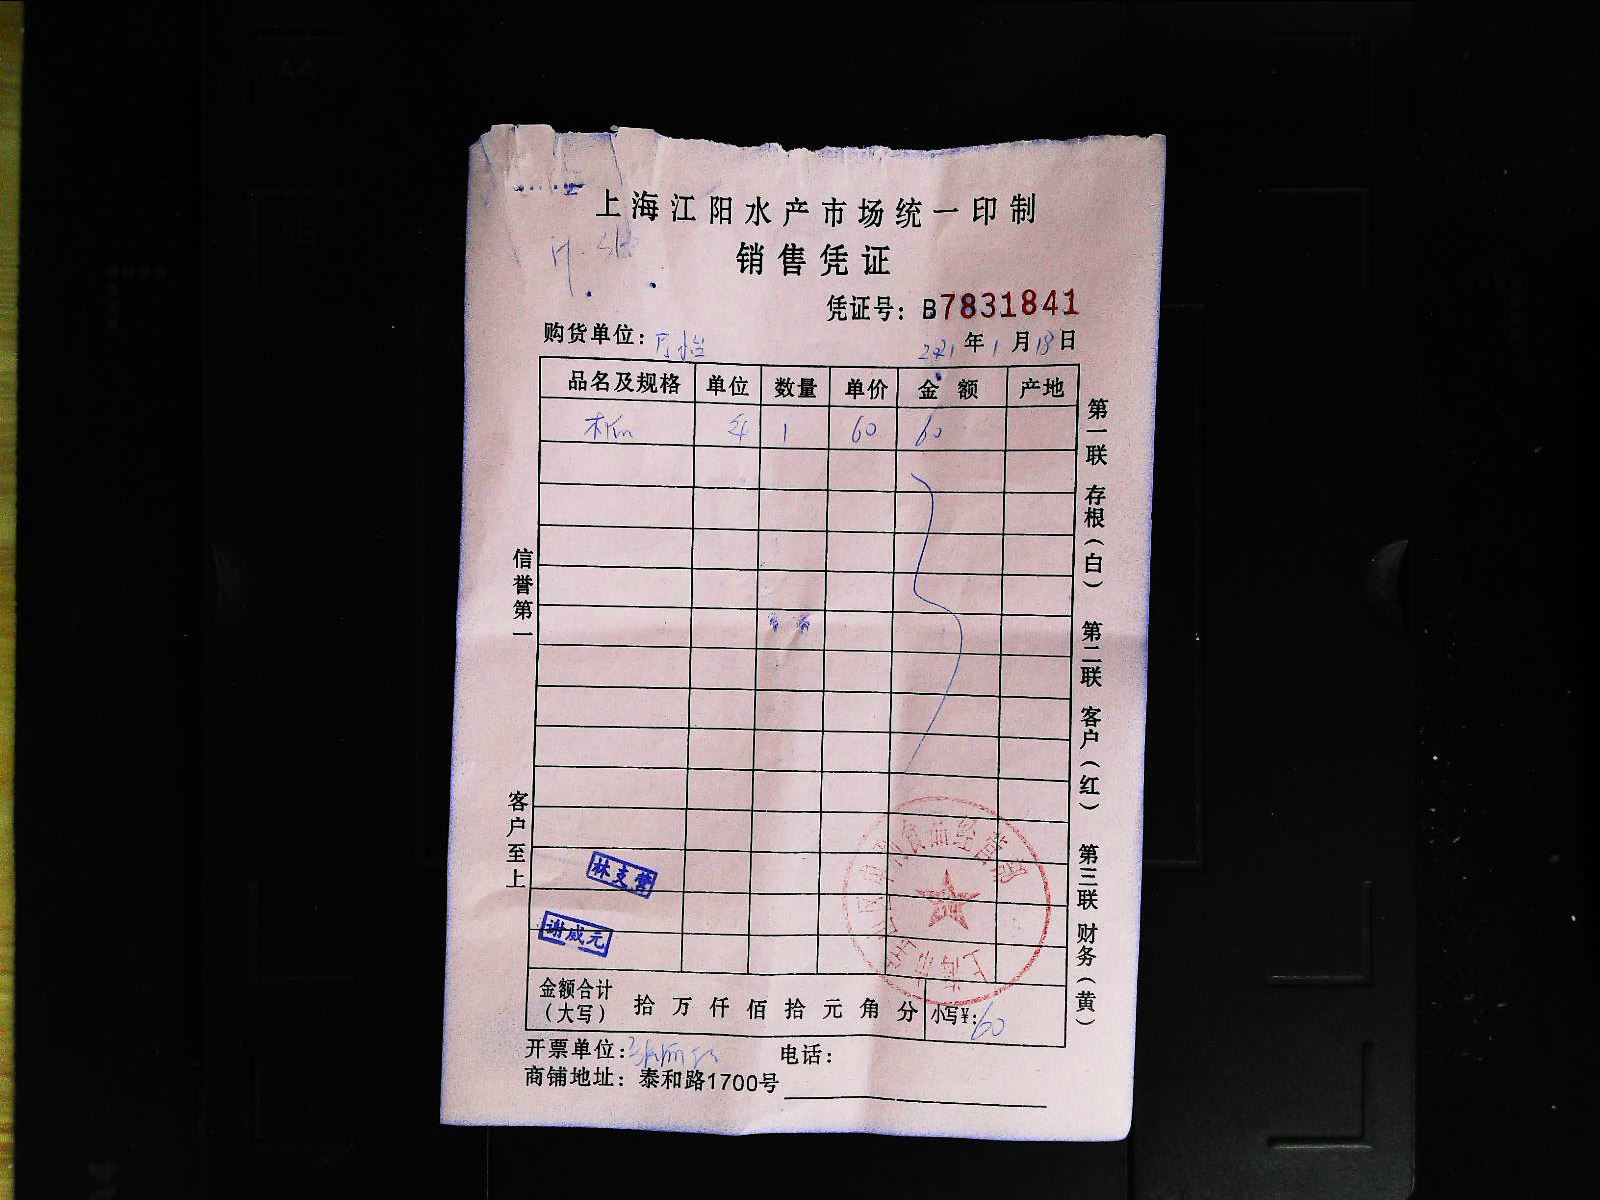 上海江阳水产市场统一印制
销售凭证
凭证号：B7831841
购货单位：
2021年1月18日
品名及规格 单位 数量 单价 金额 产地
1 60 60
信誉第一
客户至上
第一联 存根（白） 第二联 客户（红） 第三联 财务（黄）
林支营
谢成元
金额合计（大写） 拾 万 仟 佰 拾 元 角 分 小写¥：60
开票单位：
电话：
商铺地址：泰和路1700号